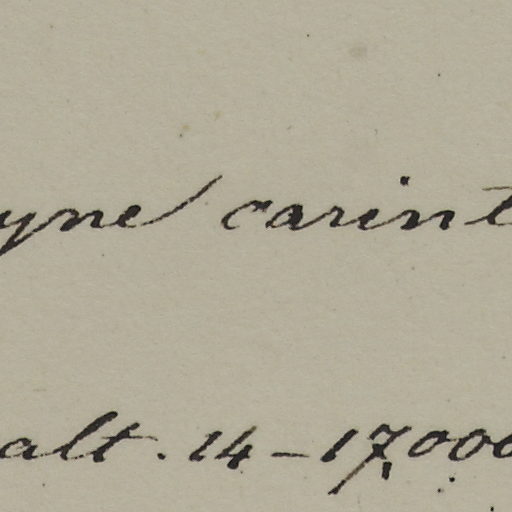 yne carint
alt. 14-17,000